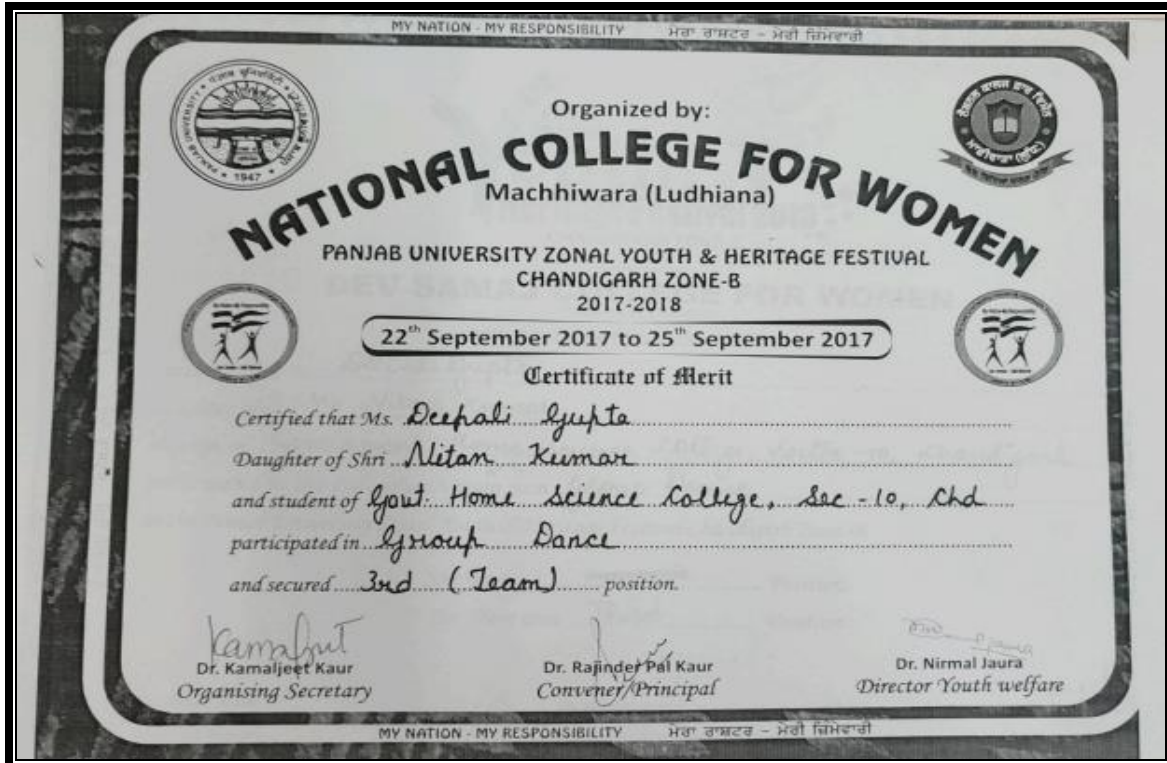 MY NATION - MY RESPONSIBILITY ਮੇਰਾ ਰਾਸ਼ਟਰ - ਮੇਰੀ ਜ਼ਿੰਮੇਵਾਰੀ
PANJAB UNIVERSITY
1947
Organized by:
NATIONAL COLLEGE FOR WOMEN
Machhiwara (Ludhiana)
PANJAB UNIVERSITY ZONAL YOUTH & HERITAGE FESTIVAL
CHANDIGARH ZONE-B
2017-2018
22th September 2017 to 25th September 2017
Certificate of Merit
Certified that Ms. Deepali Gupta
Daughter of Shri Nitan Kumar
and student of Govt. Home Science College, Sec - 10, Chd
participated in Group Dance
and secured 3rd (Team) position.
Kamaljeet
Dr. Kamaljeet Kaur Dr. Rajinder Pal Kaur Dr. Nirmal Jaura
Organising Secretary Convener/Principal Director Youth welfare
MY NATION - MY RESPONSIBILITY ਮੇਰਾ ਰਾਸ਼ਟਰ - ਮੇਰੀ ਜ਼ਿੰਮੇਵਾਰੀ